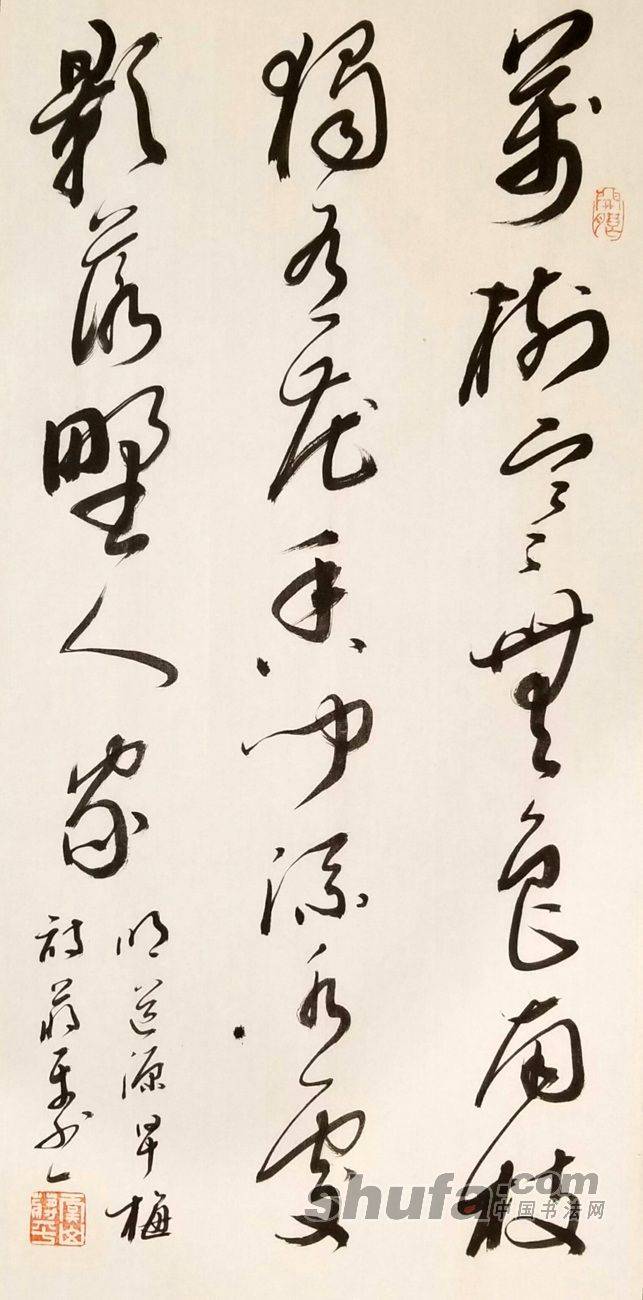 萬樹寒無色南枝
獨有花香聞流水處
影落野人家
明道源早梅
詩蔣平書
虞山
蔣平
shufa.com
中国书法网